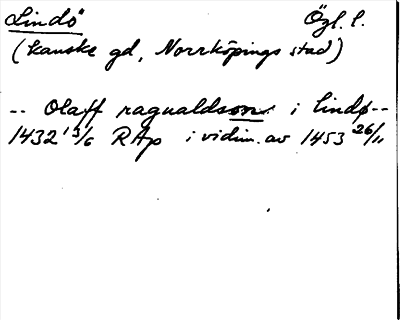 Lindö Ögl. l.
(kanske gd, Norrköpings stad)
-- Olaff ragualdson i lindø --
1432 13/6 RAp i vidim. av 1453 26/11